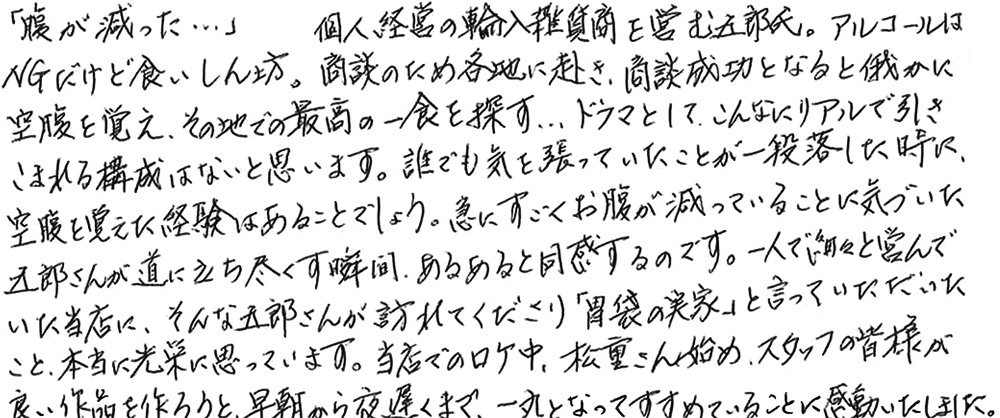 「腹が減った…」　個人経営の輸入雑貨商を営む五郎氏。アルコールは
NGだけど食いしん坊。商談のため各地に赴き、商談成功となると俄かに
空腹を覚え、その地での最高の一食を探す…ドラマとして、こんなにリアルで引き
こまれる構成はないと思います。誰でも気を張っていたことが一段落した時に、
空腹を覚えた経験はあることでしょう。急にすごくお腹が減っていることに気づいた
五郎さんが道に立ち尽くす瞬間、あるあると同感するのです。一人で細々と営んで
いた当店に、そんな五郎さんが訪れてくださり「胃袋の実家」と言っていただいた
こと、本当に光栄に思っています。当店でのロケ中、松重さん始め、スタッフの皆様が
良い作品を作ろうと、早朝から夜遅くまで、一丸となってすすめていることに感動いたしました。